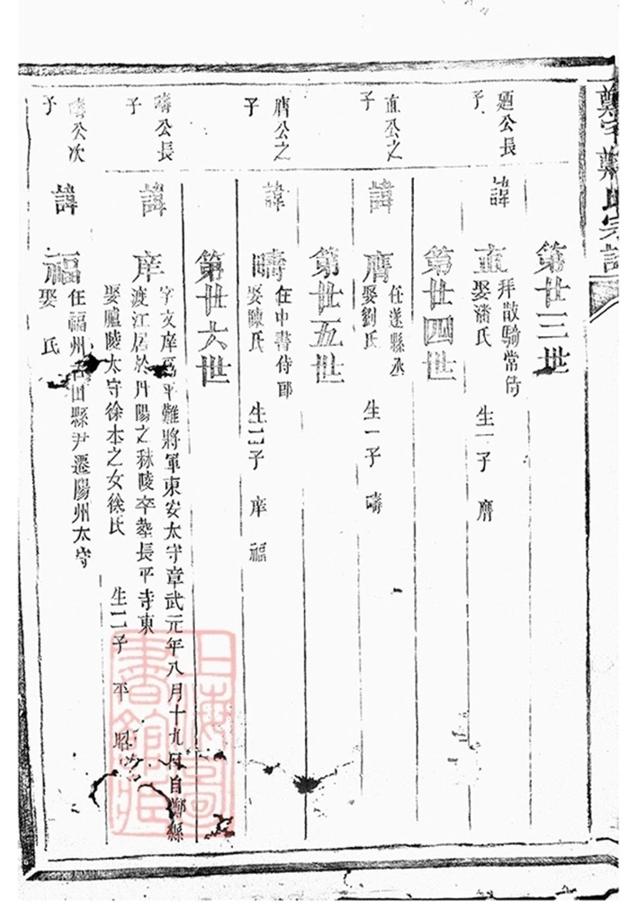 鄭氏宗譜
第廿三世
公長子
諱直
拜散騎常侍
娶潘氏
生一子膺
第廿四世
直公之子
諱膺
任遂縣丞
娶劉氏
生一子疇
第廿五世
膺公之子
諱疇
任中書侍郎
娶陳氏
生二子庠福
第廿六世
疇公長子
諱庠
字文庠為平難將軍東安太守章武元年八月十九日自鄭縣
渡江居於丹陽之秣陵卒塟長平寺東
娶廬陵太守徐本之女徐氏
生二子平昭
疇公次子
諱福
任福州古田縣尹遷陽州太守
娶氏
上海圖書館藏